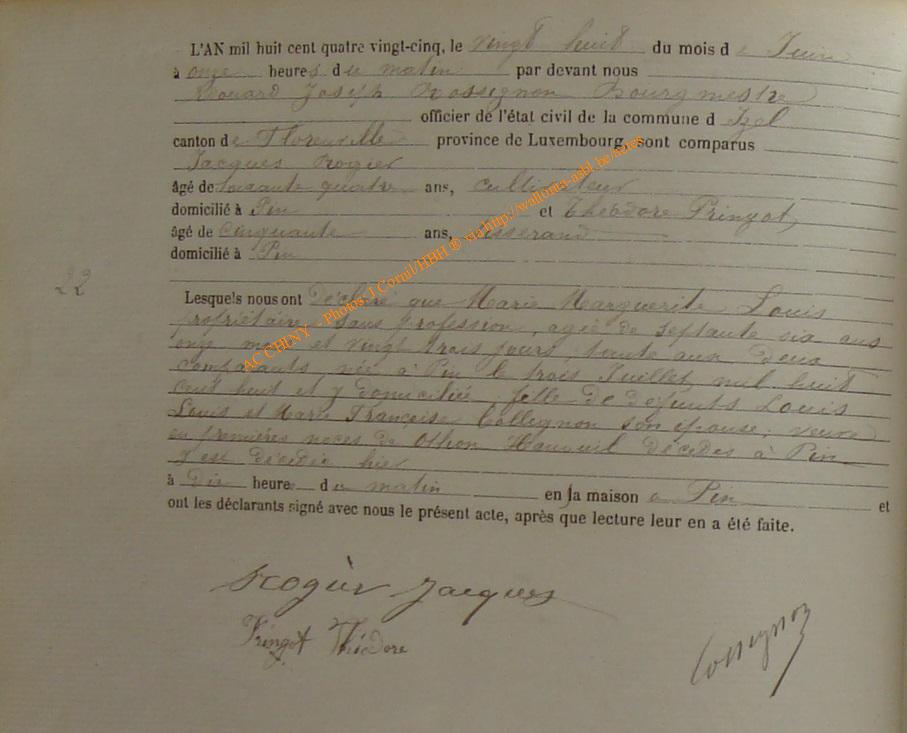 L'AN mil huit cent quatre vingt-cinq, le vingt huit du mois de Juin
à onze heures du matin par devant nous
Edouard Joseph Rossignon Bourgmestre
officier de l'état civil de la commune d Izel
canton de Florenville province de Luxembourg, sont comparus
Jacques Rogier
âgé de soixante quatre ans, cultivateur
domicilié à Pin et Théodore Pringot,
âgé de cinquante ans, tisserand
domicilié à Pin
22
Lesquels nous ont Déclaré que Marie Marguerite Louis
propriétaire sans profession, agée de septante six ans
onze mois et vingt trois jours, tante aux deux
comparants, née à Pin le trois Juillet mil huit
cent huit et y domiciliée, fille de defunts Louis
Louis et Marie Françoise Collignon son épouse, veuve
en premières noces de Othon décédés à Pin
y est décédée hier
à dix heure du matin en sa maison à Pin et
ont les déclarants signé avec nous le présent acte, après que lecture leur en a été faite.
AC CHINY - Photos J Cornil/HBH ® via http://wallonia-asbl.be/
Rogier Jacques
Pringot Théodore
Rossignon